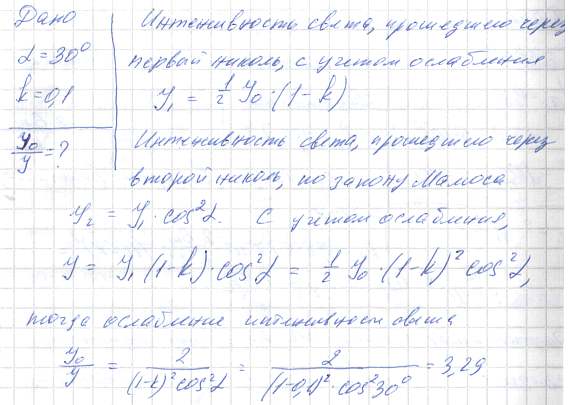 Дано
α = 30⁰
k = 0,1
y₀/y = ?
Интенсивность света, прошедшего через
первый николь, с учетом ослабления
y₁ = 1/2 y₀ · (1-k)
Интенсивность света, прошедшего через
второй николь, по закону Малюса
y₂ = y₁ · cos²α. С учетом ослабления,
y = y₁ (1-k) · cos²α = 1/2 y₀ · (1-k)² cos²α,
тогда ослабление интенсивности света
y₀/y = 2/((1-k)² cos²α) = 2/((1-0,1)² · cos²30⁰) = 3,29